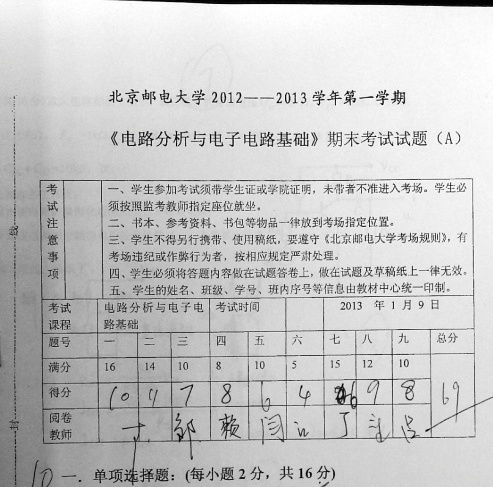 北京邮电大学2012——2013学年第一学期
《电路分析与电子电路基础》期末考试试题（A）
考试注意事项
一、学生参加考试须带学生证或学院证明，未带者不准进入考场。学生必
须按照监考教师指定座位就坐。
二、书本、参考资料、书包等物品一律放到考场指定位置。
三、学生不得另行携带、使用稿纸，要遵守《北京邮电大学考场规则》，有
考场违纪或作弊行为者，按相应规定严肃处理。
四、学生必须将答题内容做在试题答卷上，做在试题及草稿纸上一律无效。
五、学生的姓名、班级、学号、班内序号等信息由教材中心统一印制。
考试课程 电路分析与电子电路基础 考试时间 2013 年 1 月 9 日
题号 一 二 三 四 五 六 七 八 九 总分
满分 16 14 10 8 10 5 15 12 10
得分 10 7 8 6 4 9 8 69
阅卷教师 邹 赖 闫 丁
10 一. 单项选择题：(每小题 2 分，共 16 分)